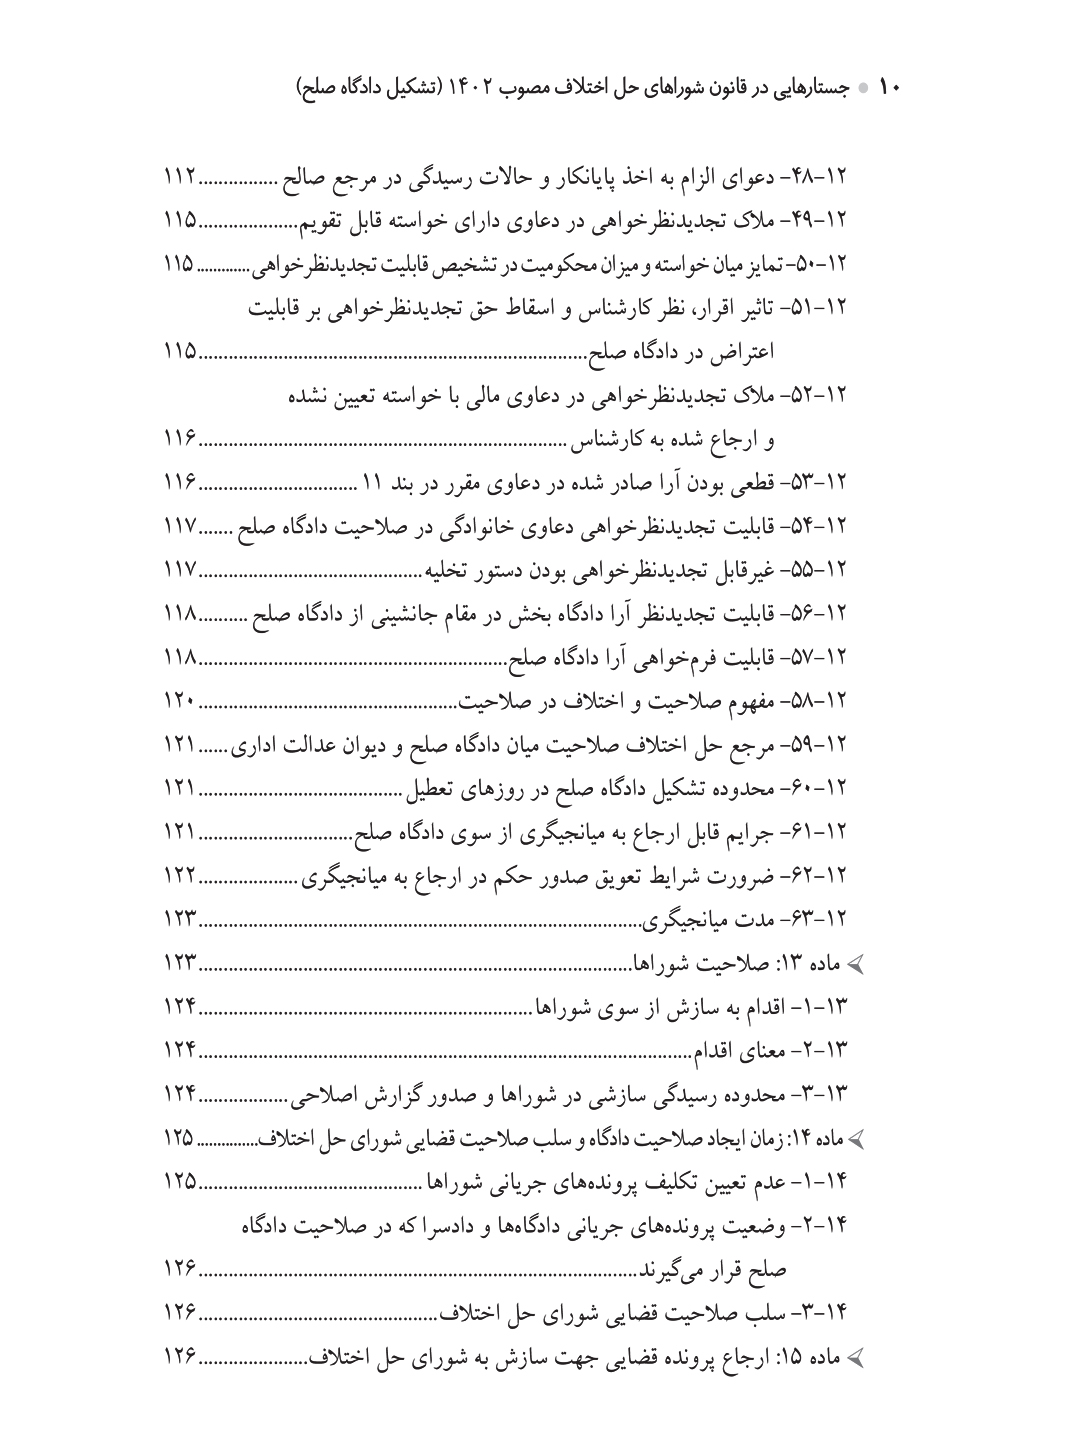 ۱۰ ● جستارهایی در قانون شوراهای حل اختلاف مصوب ۱۴۰۲ (تشکیل دادگاه صلح)
۱۲-۴۸- دعوای الزام به اخذ پایانکار و حالات رسیدگی در مرجع صالح ................ ۱۱۲
۱۲-۴۹- ملاک تجدیدنظرخواهی در دعاوی دارای خواسته قابل تقویم.................... ۱۱۵
۱۲-۵۰- تمایز میان خواسته و میزان محکومیت در تشخیص قابلیت تجدیدنظرخواهی............. ۱۱۵
۱۲-۵۱- تاثیر اقرار، نظر کارشناس و اسقاط حق تجدیدنظرخواهی بر قابلیت
اعتراض در دادگاه صلح.............................................................................. ۱۱۵
۱۲-۵۲- ملاک تجدیدنظرخواهی در دعاوی مالی با خواسته تعیین نشده
و ارجاع شده به کارشناس .......................................................................... ۱۱۶
۱۲-۵۳- قطعی بودن آرا صادر شده در دعاوی مقرر در بند ۱۱ ................................ ۱۱۶
۱۲-۵۴- قابلیت تجدیدنظرخواهی دعاوی خانوادگی در صلاحیت دادگاه صلح ....... ۱۱۷
۱۲-۵۵- غیرقابل تجدیدنظرخواهی بودن دستور تخلیه............................................. ۱۱۷
۱۲-۵۶- قابلیت تجدیدنظر آرا دادگاه بخش در مقام جانشینی از دادگاه صلح .......... ۱۱۸
۱۲-۵۷- قابلیت فرم‌خواهی آرا دادگاه صلح.............................................................. ۱۱۸
۱۲-۵۸- مفهوم صلاحیت و اختلاف در صلاحیت.................................................... ۱۲۰
۱۲-۵۹- مرجع حل اختلاف صلاحیت میان دادگاه صلح و دیوان عدالت اداری...... ۱۲۱
۱۲-۶۰- محدوده تشکیل دادگاه صلح در روزهای تعطیل ......................................... ۱۲۱
۱۲-۶۱- جرایم قابل ارجاع به میانجیگری از سوی دادگاه صلح............................... ۱۲۱
۱۲-۶۲- ضرورت شرایط تعویق صدور حکم در ارجاع به میانجیگری .................... ۱۲۲
۱۲-۶۳- مدت میانجیگری......................................................................................... ۱۲۳
⮜ ماده ۱۳: صلاحیت شوراها....................................................................................... ۱۲۳
۱۳-۱- اقدام به سازش از سوی شوراها................................................................... ۱۲۴
۱۳-۲- معنای اقدام................................................................................................... ۱۲۴
۱۳-۳- محدوده رسیدگی سازشی در شوراها و صدور گزارش اصلاحی.................. ۱۲۴
⮜ ماده ۱۴: زمان ایجاد صلاحیت دادگاه و سلب صلاحیت قضایی شورای حل اختلاف............... ۱۲۵
۱۴-۱- عدم تعیین تکلیف پرونده‌های جریانی شوراها ............................................. ۱۲۵
۱۴-۲- وضعیت پرونده‌های جریانی دادگاه‌ها و دادسرا که در صلاحیت دادگاه
صلح قرار می‌گیرند........................................................................................ ۱۲۶
۱۴-۳- سلب صلاحیت قضایی شورای حل اختلاف................................................ ۱۲۶
⮜ ماده ۱۵: ارجاع پرونده قضایی جهت سازش به شورای حل اختلاف...................... ۱۲۶